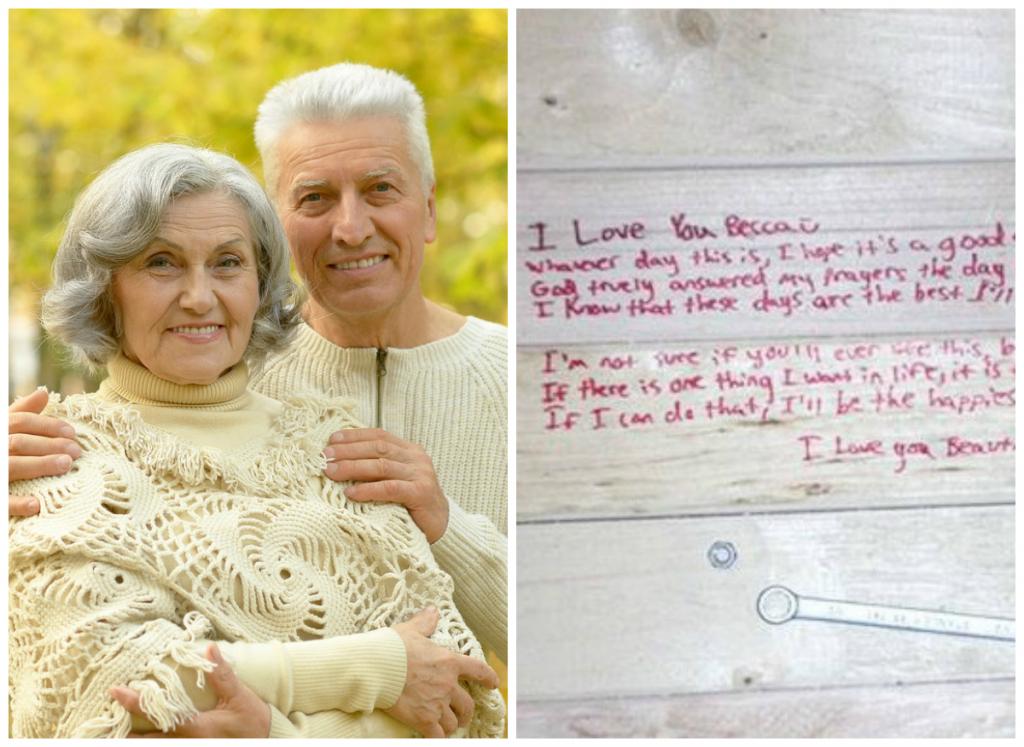 I Love You Becca
Whatever day this is, I hope it's a good
God truely answered my prayers the day
I know that these days are the best I'll
I'm not sure if you'll ever see this, b
If there is one thing I want in life, it is
If I can do that, I'll be the happies
I Love you Beauti